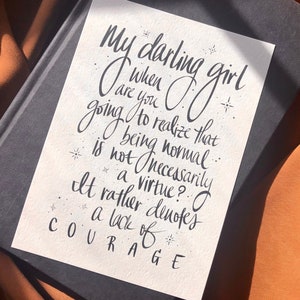 My darling girl
when
are you
going to realize that
being normal
is not necessarily
a virtue?
It rather denotes
a lack of
COURAGE